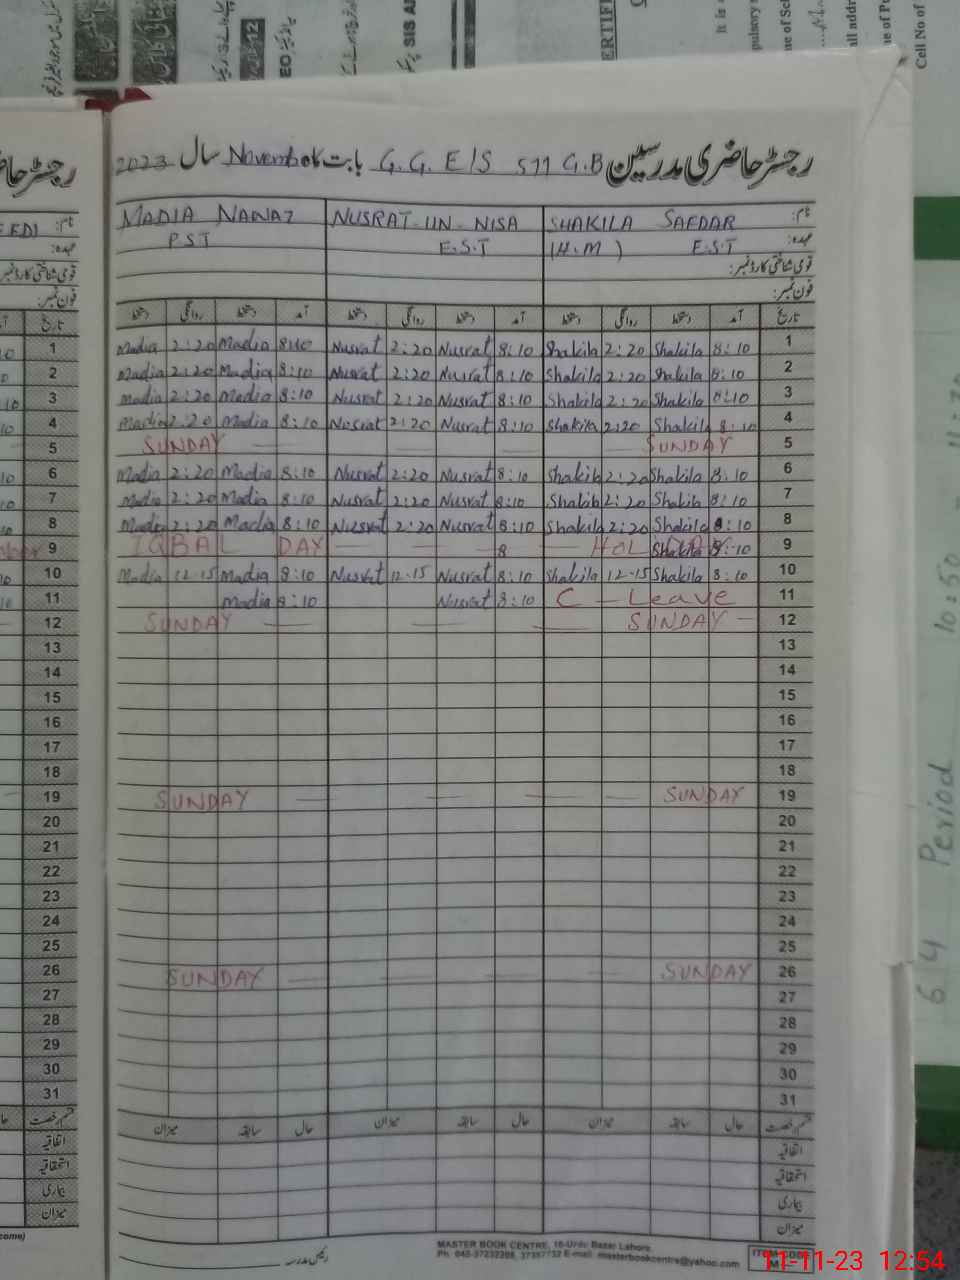 رجسٹر حاضری مدرسین G.G.E/S 511 G.B بابت ماہ November سال 2023
نام: SHAKILA SAFDAR NUSRAT-UN-NISA MADIA NAWAZ
عہدہ: (H.M) E.S.T E.S.T PST
قومی شناختی کارڈ نمبر:
فون نمبر:
تاریخ آمد دستخط روانگی دستخط آمد دستخط روانگی دستخط آمد دستخط روانگی دستخط
Madia 2:20 Madia 8:10 Nusrat 2:20 Nusrat 8:10 Shakila 2:20 Shakila 8:10 1
Madia 2:20 Madia 8:10 Nusrat 2:20 Nusrat 8:10 Shakila 2:20 Shakila 8:10 2
Madia 2:20 Madia 8:10 Nusrat 2:20 Nusrat 8:10 Shakila 2:20 Shakila 8:10 3
Madia 2:20 Madia 8:10 Nusrat 2:20 Nusrat 8:10 Shakila 2:20 Shakila 8:10 4
SUNDAY SUNDAY 5
Madia 2:20 Madia 8:10 Nusrat 2:20 Nusrat 8:10 Shakila 2:20 Shakila 8:10 6
Madia 2:20 Madia 8:10 Nusrat 2:20 Nusrat 8:10 Shakila 2:20 Shakila 8:10 7
Madia 2:20 Madia 8:10 Nusrat 2:20 Nusrat 8:10 Shakila 2:20 Shakila 8:10 8
IQBAL DAY 8 Shakila 8:10 9
Madia 12-15 Madia 8:10 Nusrat 12-15 Nusrat 8:10 Shakila 12-15 Shakila 8:10 10
Madia 8:10 Nusrat 8:10 C - Leave 11
SUNDAY SUNDAY 12
13
14
15
16
17
18
SUNDAY SUNDAY 19
20
21
22
23
24
25
SUNDAY SUNDAY 26
27
28
29
30
31
قسم رخصت حال سابقہ میزان حال سابقہ میزان حال سابقہ میزان
اتفاقیہ
استحقاقیہ
بیماری
میزان
رئیس مدرسہ
MASTER BOOK CENTRE, 16-Urdu Bazar Lahore.
E-mail: masterbookcentre@yahoo.com
ITEM CODE
11-11-23 12:54
64 Period 10:50